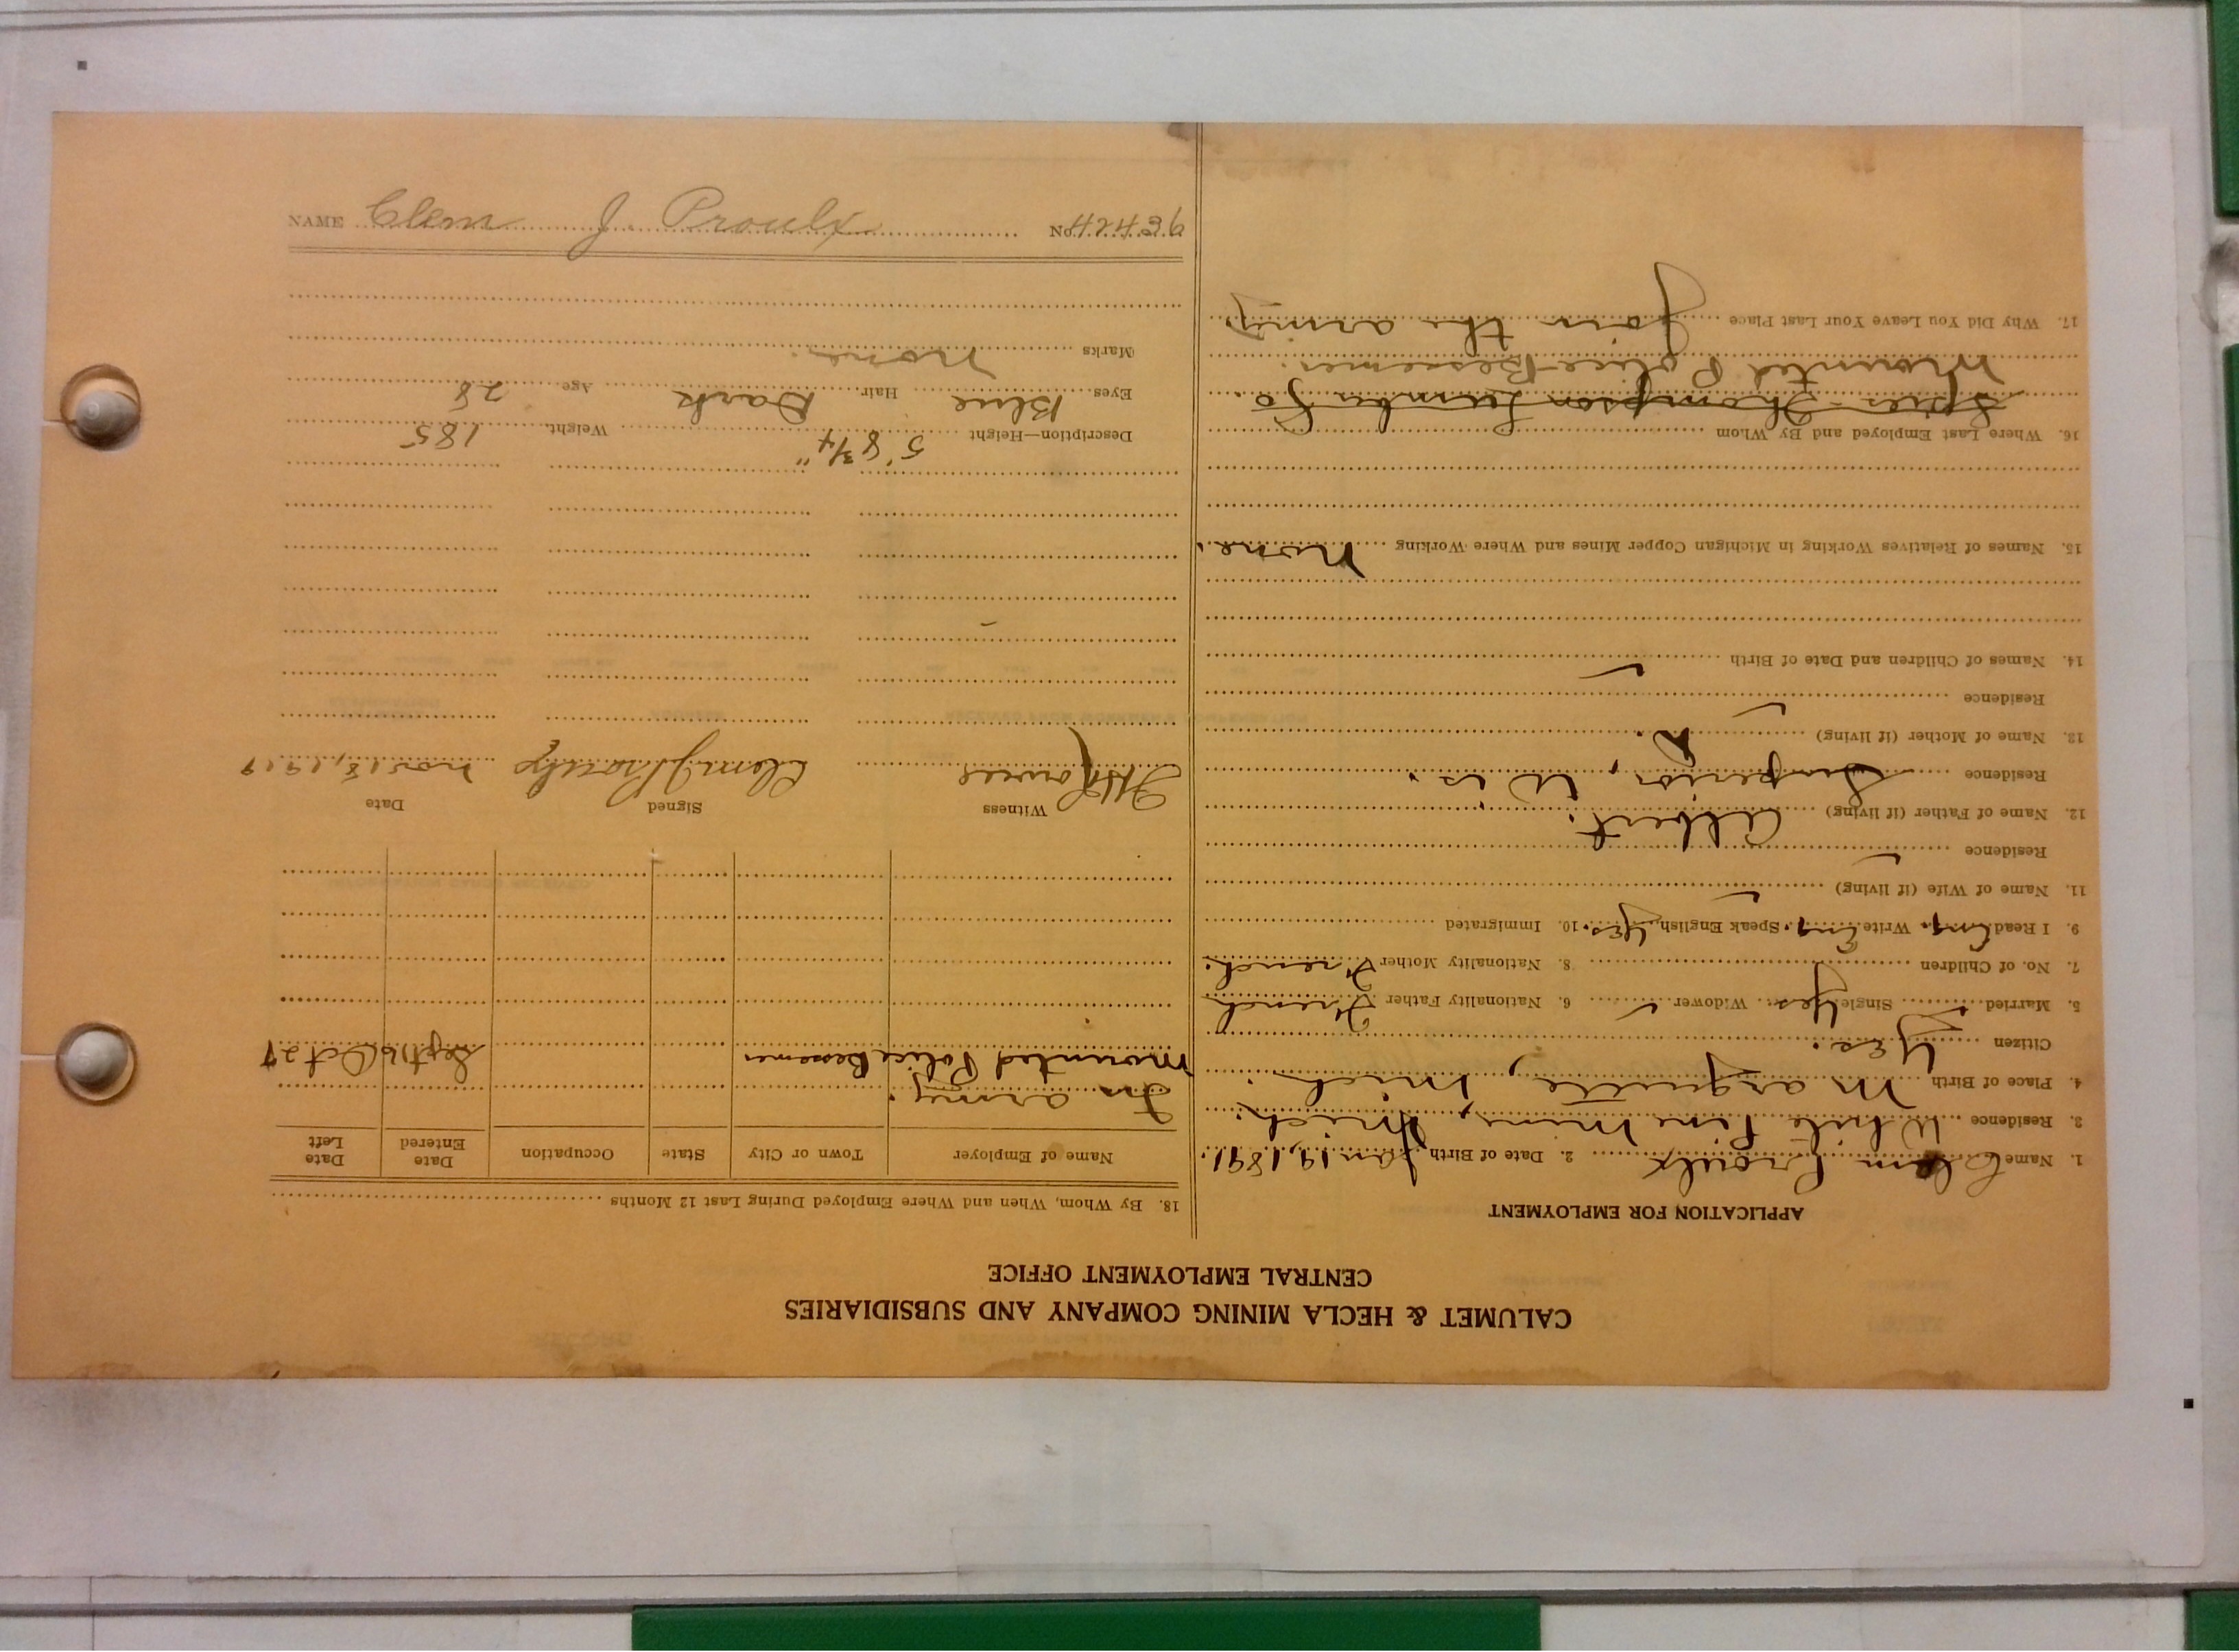 CALUMET & HECLA MINING COMPANY AND SUBSIDIARIES
CENTRAL EMPLOYMENT OFFICE
APPLICATION FOR EMPLOYMENT
1. Name Clem Proulx 2. Date of Birth Jan 19, 1891.
3. Residence White Pine Mine, Mich.
4. Place of Birth Marquette, Mich.
Citizen Yes.
5. Married Single Yes. Widower 6. Nationality Father French
7. No. of Children 8. Nationality Mother French.
9. I Read Eng. Write Eng. Speak English Yes. 10. Immigrated
11. Name of Wife (if living)
Residence
12. Name of Father (if living) Albert.
Residence Superior, Wis.
13. Name of Mother (if living)
Residence
14. Names of Children and Date of Birth
15. Names of Relatives Working in Michigan Copper Mines and Where Working None.
16. Where Last Employed and By Whom
Thompson Lumber Co.
Mounted Police Bessemer.
17. Why Did You Leave Your Last Place Join the army.
18. By Whom, When and Where Employed During Last 12 Months
Name of Employer Town or City State Occupation Date Entered Date Left
In army.
Mounted Police Bessemer Sept 16 Oct 27
Witness Signed Date
Clem J Proulx Nov 18, 1919
Description—Height 5' 8 3/4" Weight 185
Eyes Blue Hair Dark Age 28
Marks None.
NAME Clem J. Proulx No. 42436